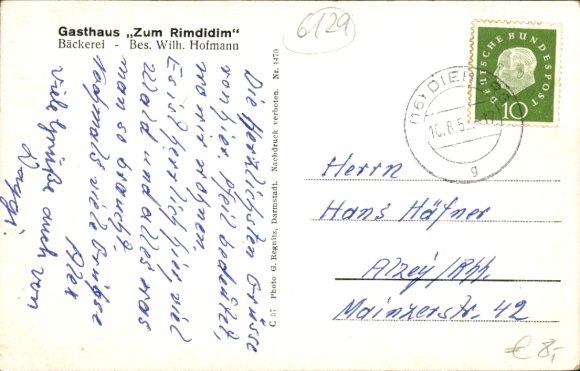 Gasthaus „Zum Rimdidim"
Bäckerei - Bes. Wilh. Hofmann
6129
DEUTSCHE BUNDESPOST
10
(16) DIE
g
Die herzlichsten Grüsse
von hier. Pfeil bedeutet,
wo wir wohnen.
Es ist herrlich hier viel
Wald und alles was
man so braucht
Nochmals viele Grüsse
Alex
viele Grüße auch von
C 57 Photo G. Regnitz, Darmstadt. Nachdruck verboten. Nr. 1470
Herrn
Hans Häfner
Alzey/Rhh.
Mainzerstr. 42
€ 8,-